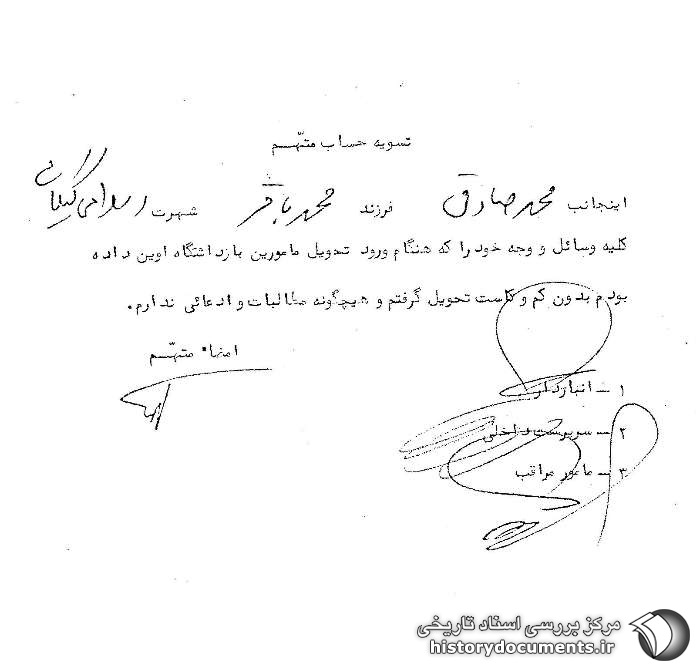 تسویه حساب متّهم
اینجانب محمد صادق فرزند محمد باقر شهرت اسلامی گیلانی
کلیه وسائل و وجه خود را که هنگام ورود تحویل مامورین بازداشتگاه اوین داده
بودم بدون کم و کاست تحویل گرفتم و هیچگونه مطالبات و ادعائی ندارم.
امضاء متّهم
۱ - انباردار
۲ - سرپرست داخلی
۳ - مامور مراقب
مرکز بررسی اسناد تاریخی
historydocuments.ir